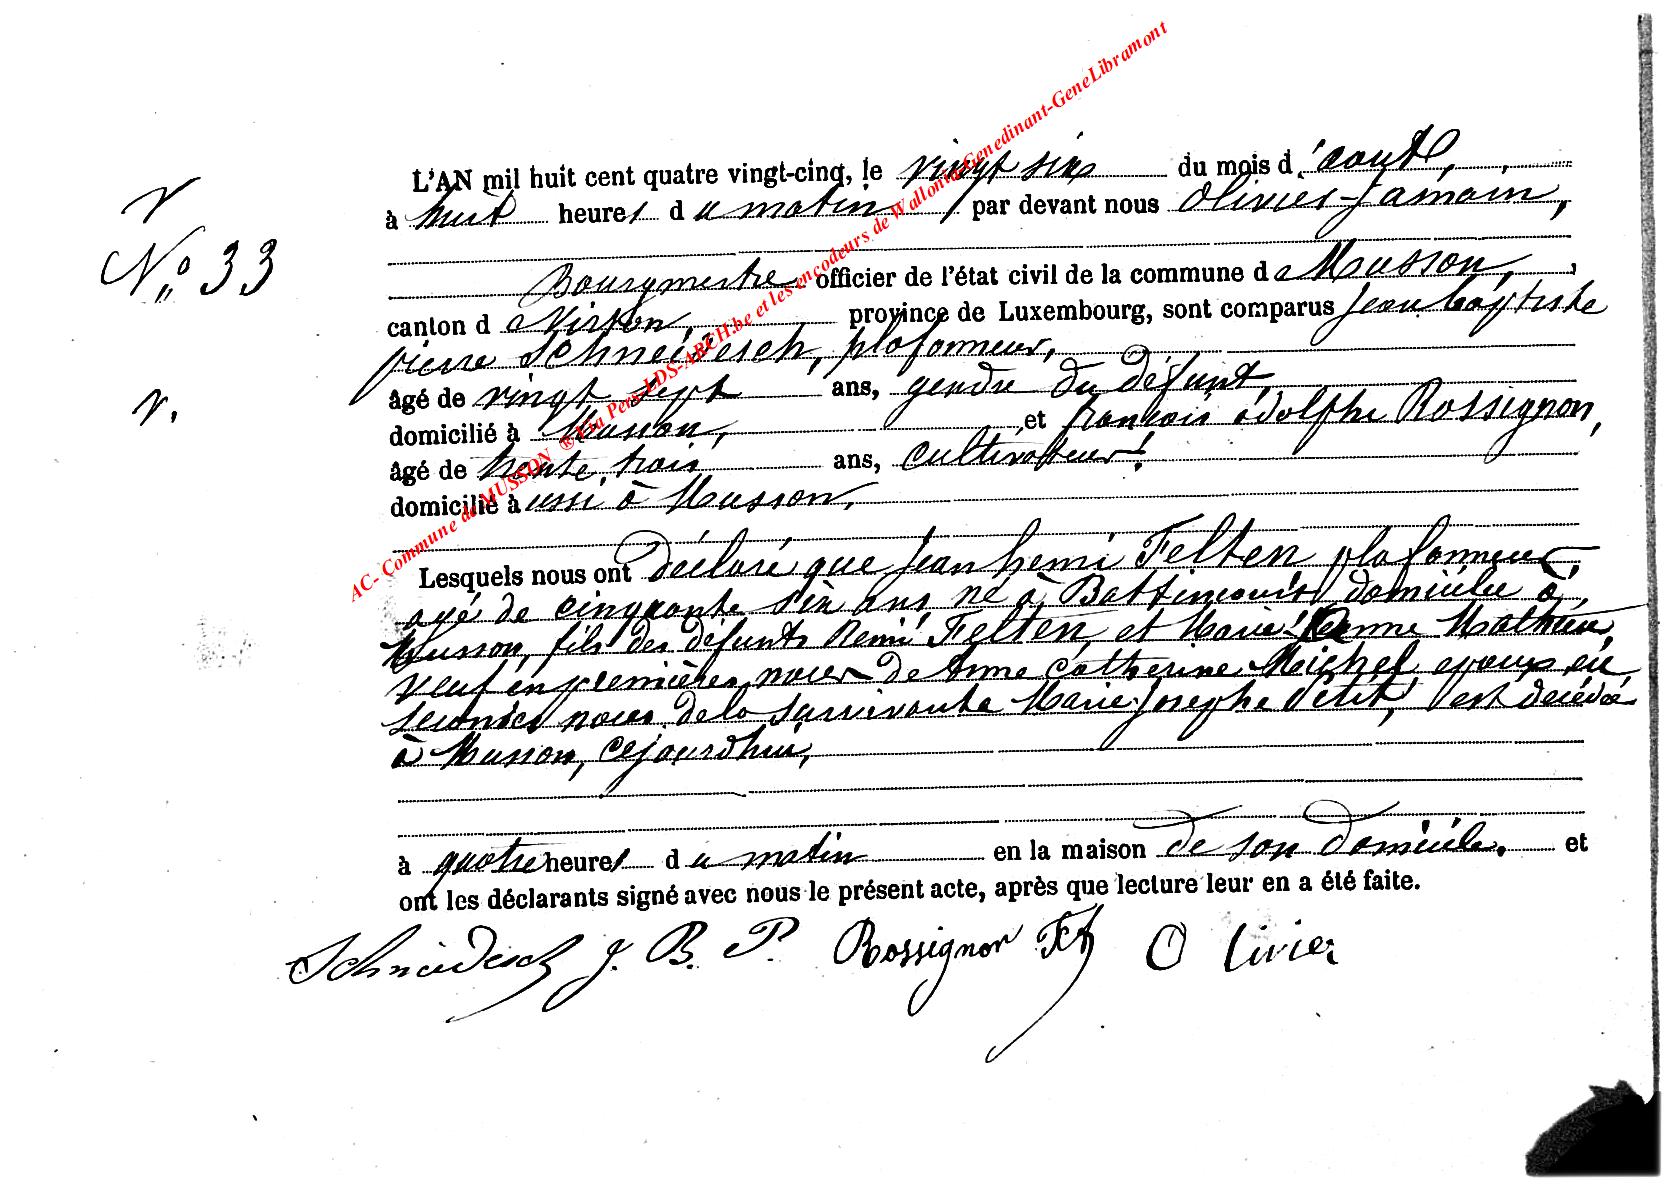 AC- Commune de MUSSON ® Via Pers-LDS-ARCH.be et les encodeurs de Wallonia-Genedinant-GeneLibramont
L'AN mil huit cent quatre vingt-cinq, le vingt six du mois d'août,
à huit heures du matin, par devant nous Olivier Jamain,
N° 33
Bourgmestre officier de l'état civil de la commune de Musson,
canton de Virton, province de Luxembourg, sont comparus Jean Baptiste
pierre Schneidesch, plafonneur,
âgé de vingt sept ans, gendre du défunt,
domicilié à Musson, et françois adolphe Rossignon,
âgé de trente trois ans, cultivateur,
domicilié aussi à Musson,
Lesquels nous ont déclaré que Jean henri Felten plafonneur
agé de cinquante six ans, né à Battincourt, domicilié à
Musson, fils des défunts Remi Felten, et Marie Anne Mathieu,
veuf en premières noces de Anne Catherine Michel, epoux en
secondes noces de la survivante Marie Josephe Petit, est décédé
à Musson, cejourdhui,
à quatre heures du matin en la maison de son domicile, et
ont les déclarants signé avec nous le présent acte, après que lecture leur en a été faite.
Schneidesch J. B. P. Rossignon Olivier